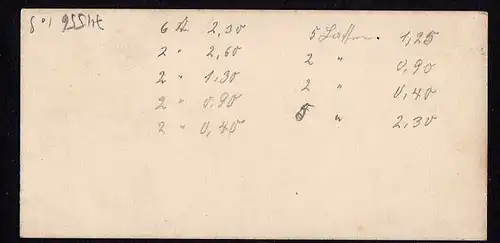 6 St 2,30
2 " 2,60
2 " 1,30
2 " 0,90
2 " 0,40
5 1,25
2 " 0,90
2 " 0,40
5 " 2,30